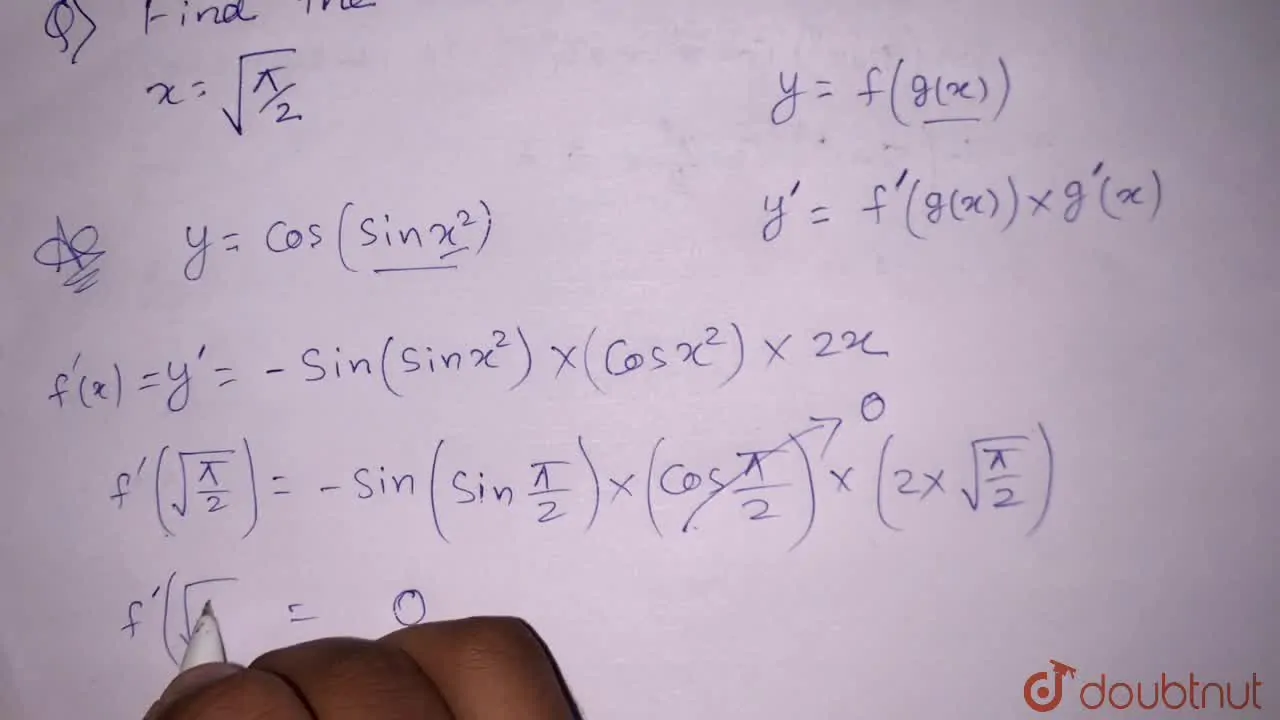 Q) Find the
x = √(π/2)
y = f(g(x))
y' = f'(g(x)) × g'(x)
y = Cos(Sinx²)
f'(x) = y' = - Sin(Sinx²) × (Cosx²) × 2x
0
f'(√(π/2)) = - Sin(Sin π/2) × (Cos π/2) × (2 × √(π/2))
f'(√ = 0
doubtnut